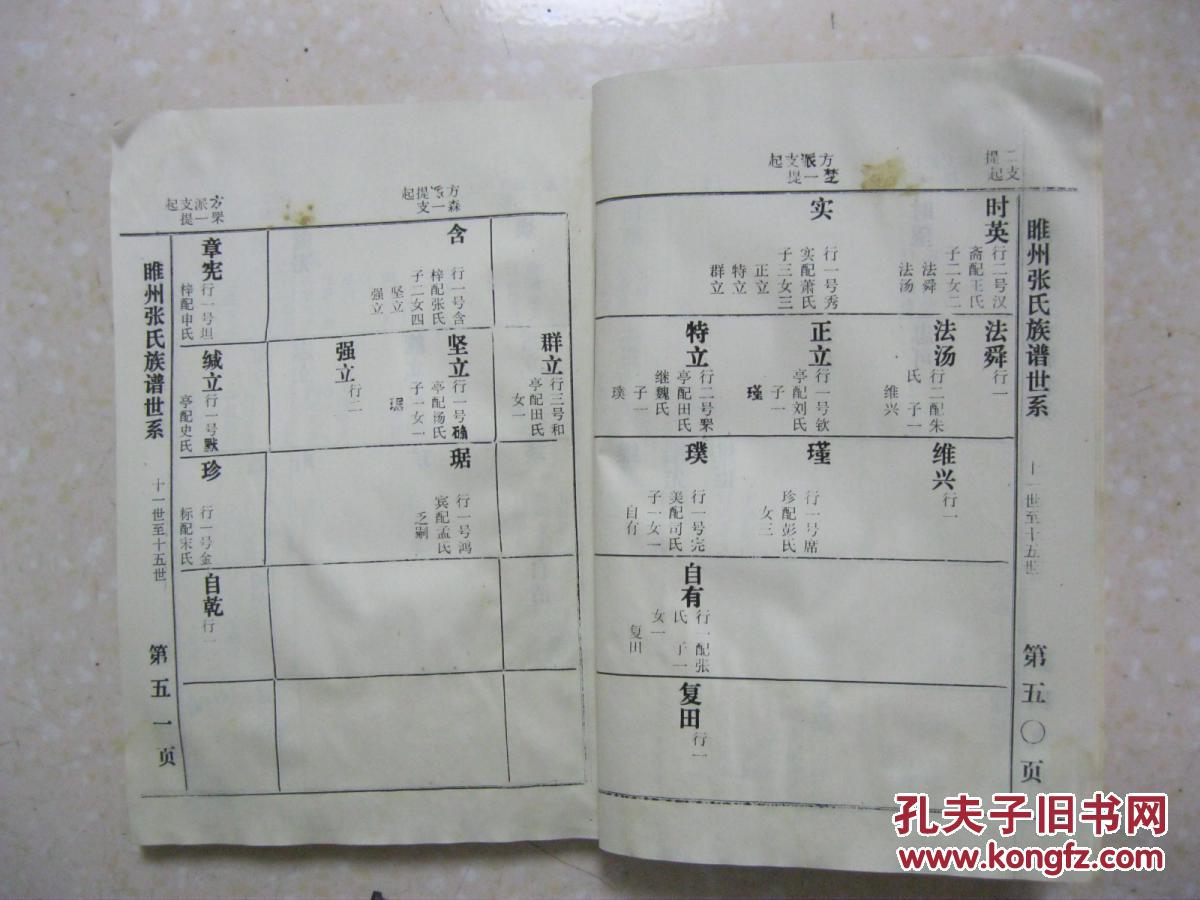 睢州张氏族谱世系
十一世至十五世
第五〇页
二支
提起
时英
行二号汉
斋配王氏
子二女二
法舜
法汤
方楚
派一
支提
起
实
行一号秀
实配萧氏
子三女三
正立
特立
群立
法舜
行一
法汤
行二配朱
氏 子一
维兴
正立
行一号钦
亭配刘氏
子一
瑾
特立
行二号聚
亭配田氏
继魏氏
子一
璞
维兴
行一
瑾
行一号席
珍配彭氏
女三
璞
行一号完
美配司氏
子一女一
自有
自有
行一配张
氏 子一
女一
复田
复田
行一
群立
行三号和
亭配田氏
女一
方森
一
提支
起
含
行一号含
梓配张氏
子二女四
坚立
强立
坚立
行一号确
亭配杨氏
子一女一
琚
强立
行二
琚
行一号鸿
宾配孟氏
乏嗣
派一
支提
起
章宪
行一号坦
梓配申氏
缄立
行一号默
亭配史氏
珍
行一号金
标配宋氏
自乾
行一
睢州张氏族谱世系
十一世至十五世
第五一页
孔夫子旧书网
www.kongfz.com